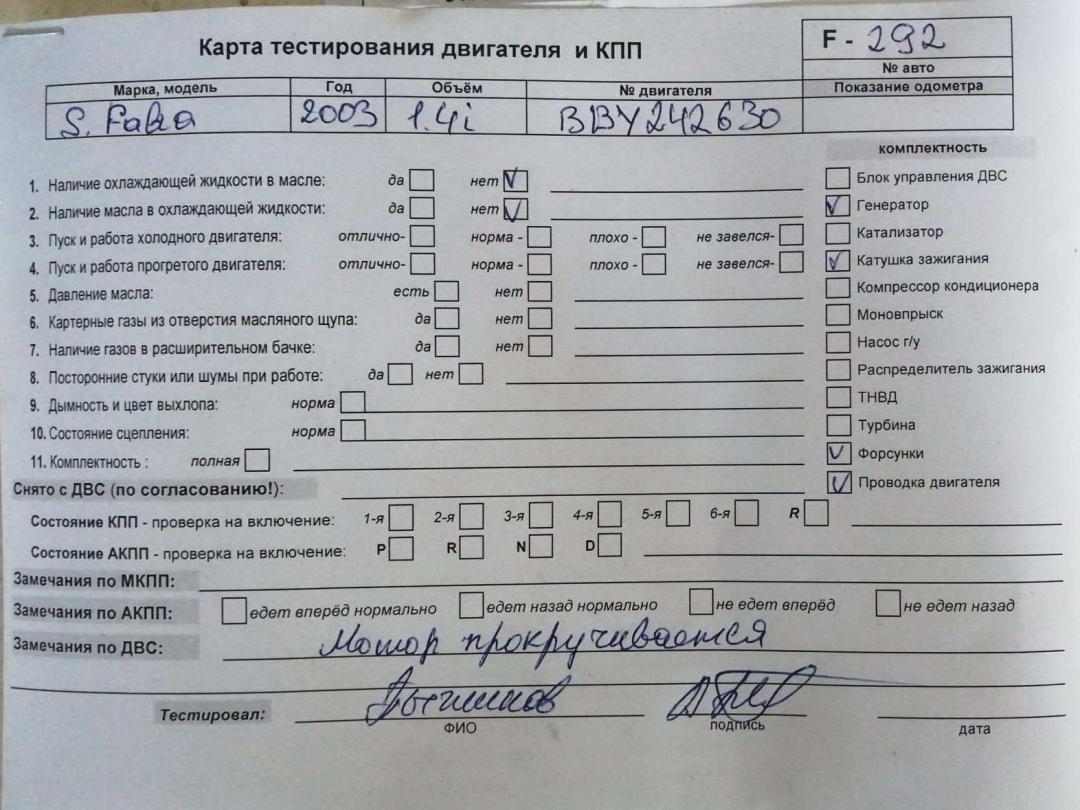 Карта тестирования двигателя и КПП
F - 292
№ авто
Марка, модель Год Объём № двигателя Показание одометра
S. Fabia 2003 1.4i BBY242630
комплектность
1. Наличие охлаждающей жидкости в масле: да нет
Блок управления ДВС
2. Наличие масла в охлаждающей жидкости: да нет
Генератор
3. Пуск и работа холодного двигателя: отлично- норма - плохо - не завелся-
Катализатор
4. Пуск и работа прогретого двигателя: отлично- норма - плохо - не завелся-
Катушка зажигания
5. Давление масла: есть нет
Компрессор кондиционера
6. Картерные газы из отверстия масляного щупа: да нет
Моновпрыск
7. Наличие газов в расширительном бачке: да нет
Насос г/у
8. Посторонние стуки или шумы при работе: да нет
Распределитель зажигания
9. Дымность и цвет выхлопа: норма
ТНВД
10. Состояние сцепления: норма
Турбина
11. Комплектность : полная
Форсунки
Снято с ДВС (по согласованию!):
Проводка двигателя
Состояние КПП - проверка на включение: 1-я 2-я 3-я 4-я 5-я 6-я R
Состояние АКПП - проверка на включение: P R N D
Замечания по МКПП:
Замечания по АКПП: едет вперёд нормально едет назад нормально не едет вперёд не едет назад
Замечания по ДВС: Мотор прокручивается
Тестировал:
ФИО подпись дата